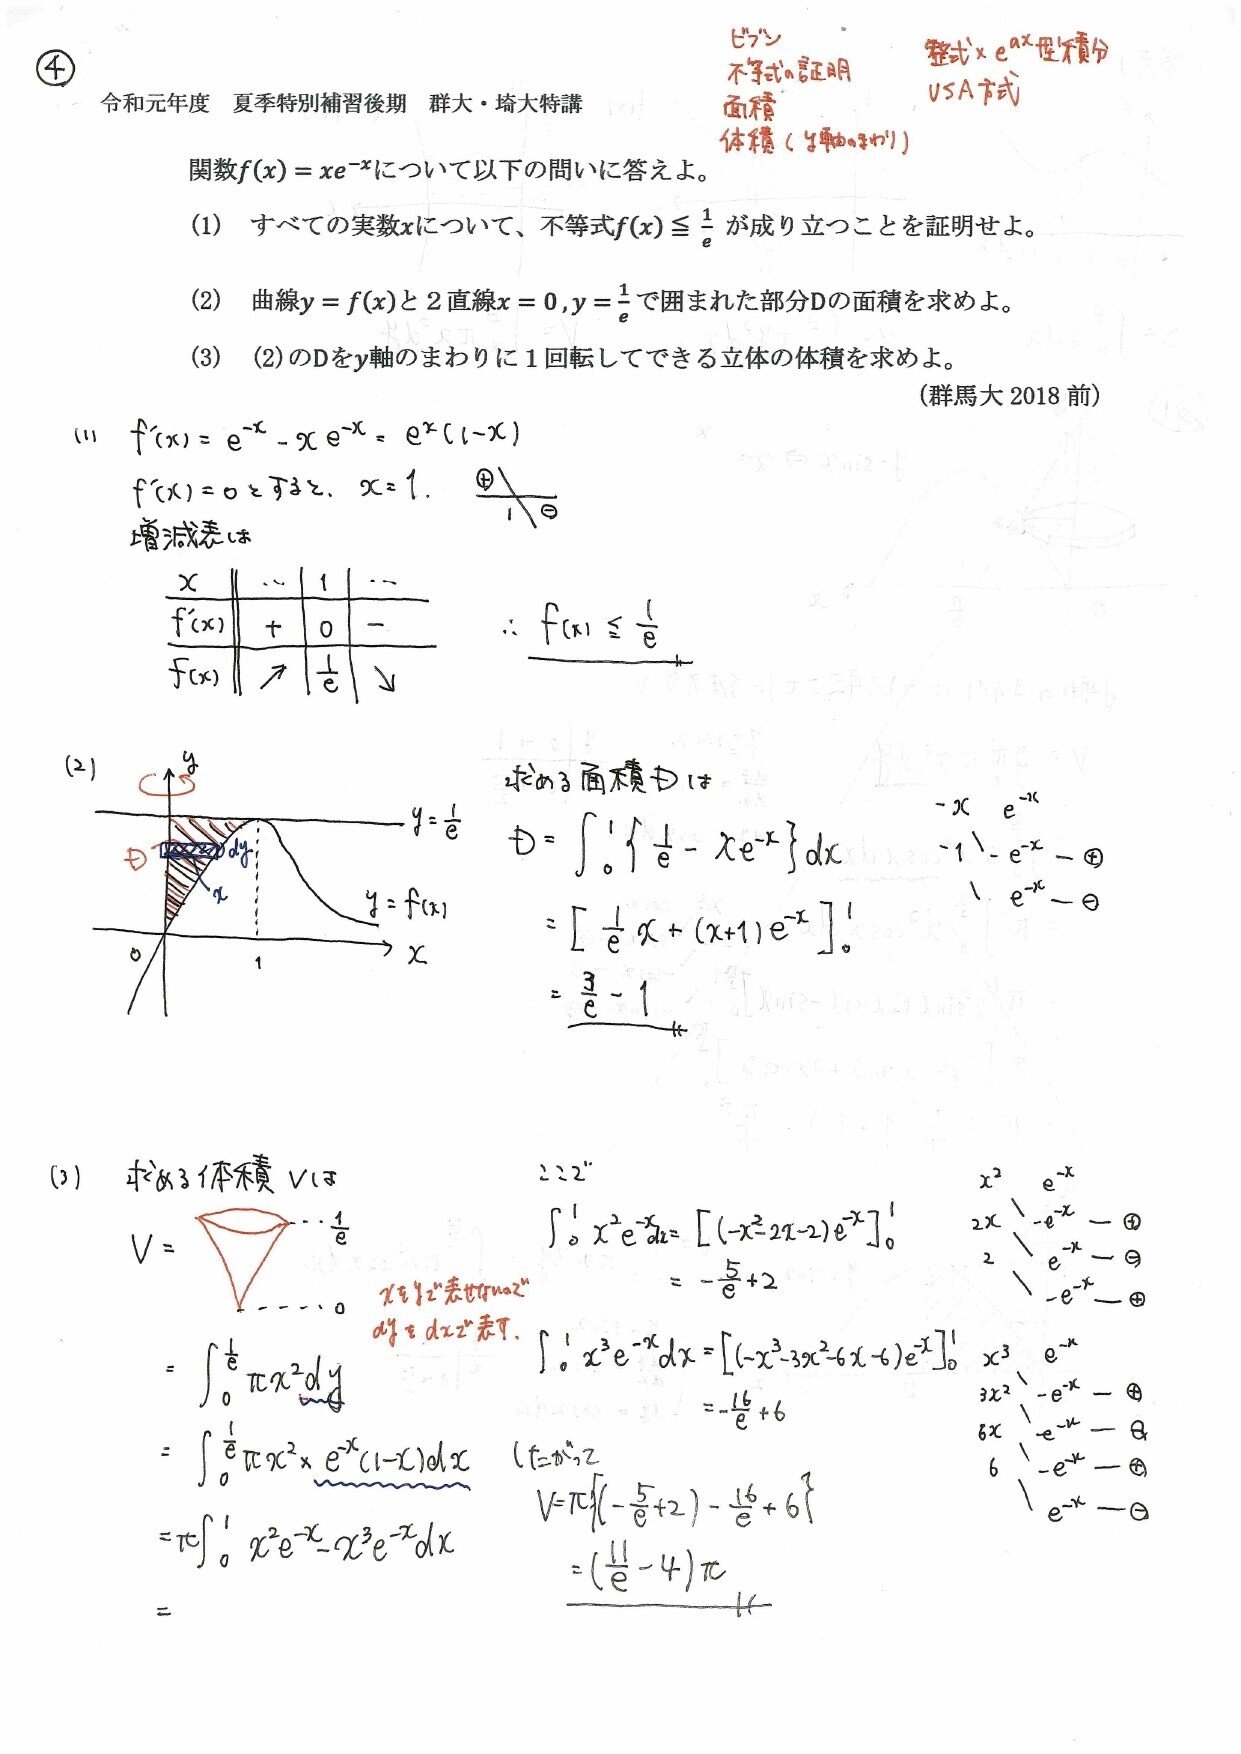 ④
ビブン
不等式の証明
面積
体積(y軸のまわり)
整式×e^{ax}型積分
USA方式
令和元年度 夏季特別補習後期 群大・埼大特講
関数f(x) = xe^{-x}について以下の問いに答えよ。
(1) すべての実数xについて、不等式f(x) ≦ 1/e が成り立つことを証明せよ。
(2) 曲線y = f(x)と２直線x = 0, y = 1/e で囲まれた部分Dの面積を求めよ。
(3) (2)のDをy軸のまわりに１回転してできる立体の体積を求めよ。
(群馬大 2018 前)
(1) f'(x) = e^{-x} - xe^{-x} = e^{x}(1-x)
f'(x) = 0とすると、x = 1. ⊕ 1 ⊖
増減表は
x ... 1 ...
f'(x) + 0 -
f(x) ↗ 1/e ↘
∴ f(x) ≦ 1/e
(2)
y
y = 1/e
D dy
x
y = f(x)
0 1 x
求める面積Dは
D = ∫_0^1 {1/e - xe^{-x}}dx
= [1/e x + (x+1)e^{-x}]_0^1
= 3/e - 1
-x e^{-x}
-1 -e^{-x} — ⊕
e^{-x} — ⊖
(3) 求める体積Vは
V = ... 1/e
---- 0
xをyで表せないので
dyをdxで表す.
= ∫_0^{1/e} πx^2dy
= ∫_0^{1/e} πx^2 × e^{-x}(1-x)dx
= π∫_0^1 x^2e^{-x} - x^3e^{-x}dx
=
ここで
∫_0^1 x^2e^{-x}dx = [(-x^2-2x-2)e^{-x}]_0^1
= -5/e + 2
∫_0^1 x^3e^{-x}dx = [(-x^3-3x^2-6x-6)e^{-x}]_0^1
= -16/e + 6
したがって
V = π{(-5/e + 2) - 16/e + 6}
= (11/e - 4)π
x^2 e^{-x}
2x -e^{-x} — ⊕
2 e^{-x} — ⊖
-e^{-x} — ⊕
x^3 e^{-x}
3x^2 -e^{-x} — ⊕
6x -e^{-x} — ⊖
6 -e^{-x} — ⊕
e^{-x} — ⊖